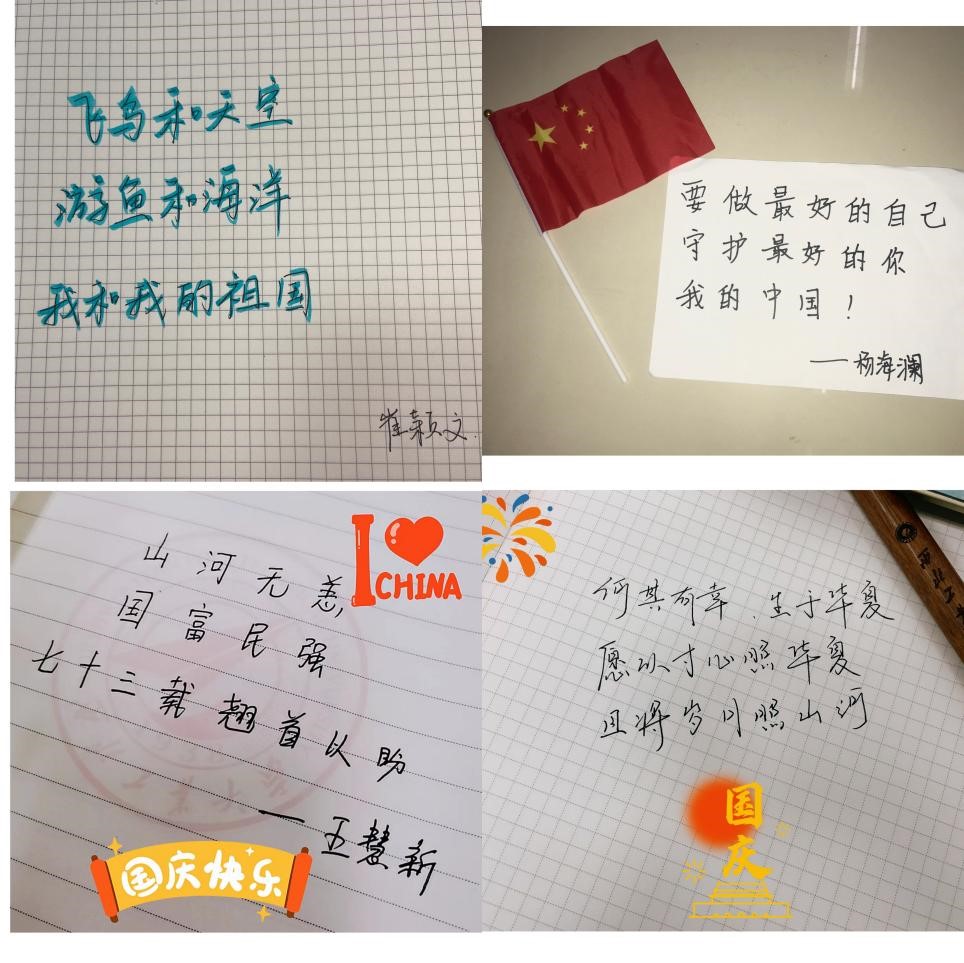 飞鸟和天空
游鱼和海洋
我和我的祖国
崔颖文
要做最好的自己
守护最好的你
我的中国！
——杨海澜
I
CHINA
山河无恙,
国富民强
七十三载翘首以盼
—王慧新
国庆快乐
何其有幸.生于华夏
愿以寸心照华夏
且将岁月照山河
国
庆